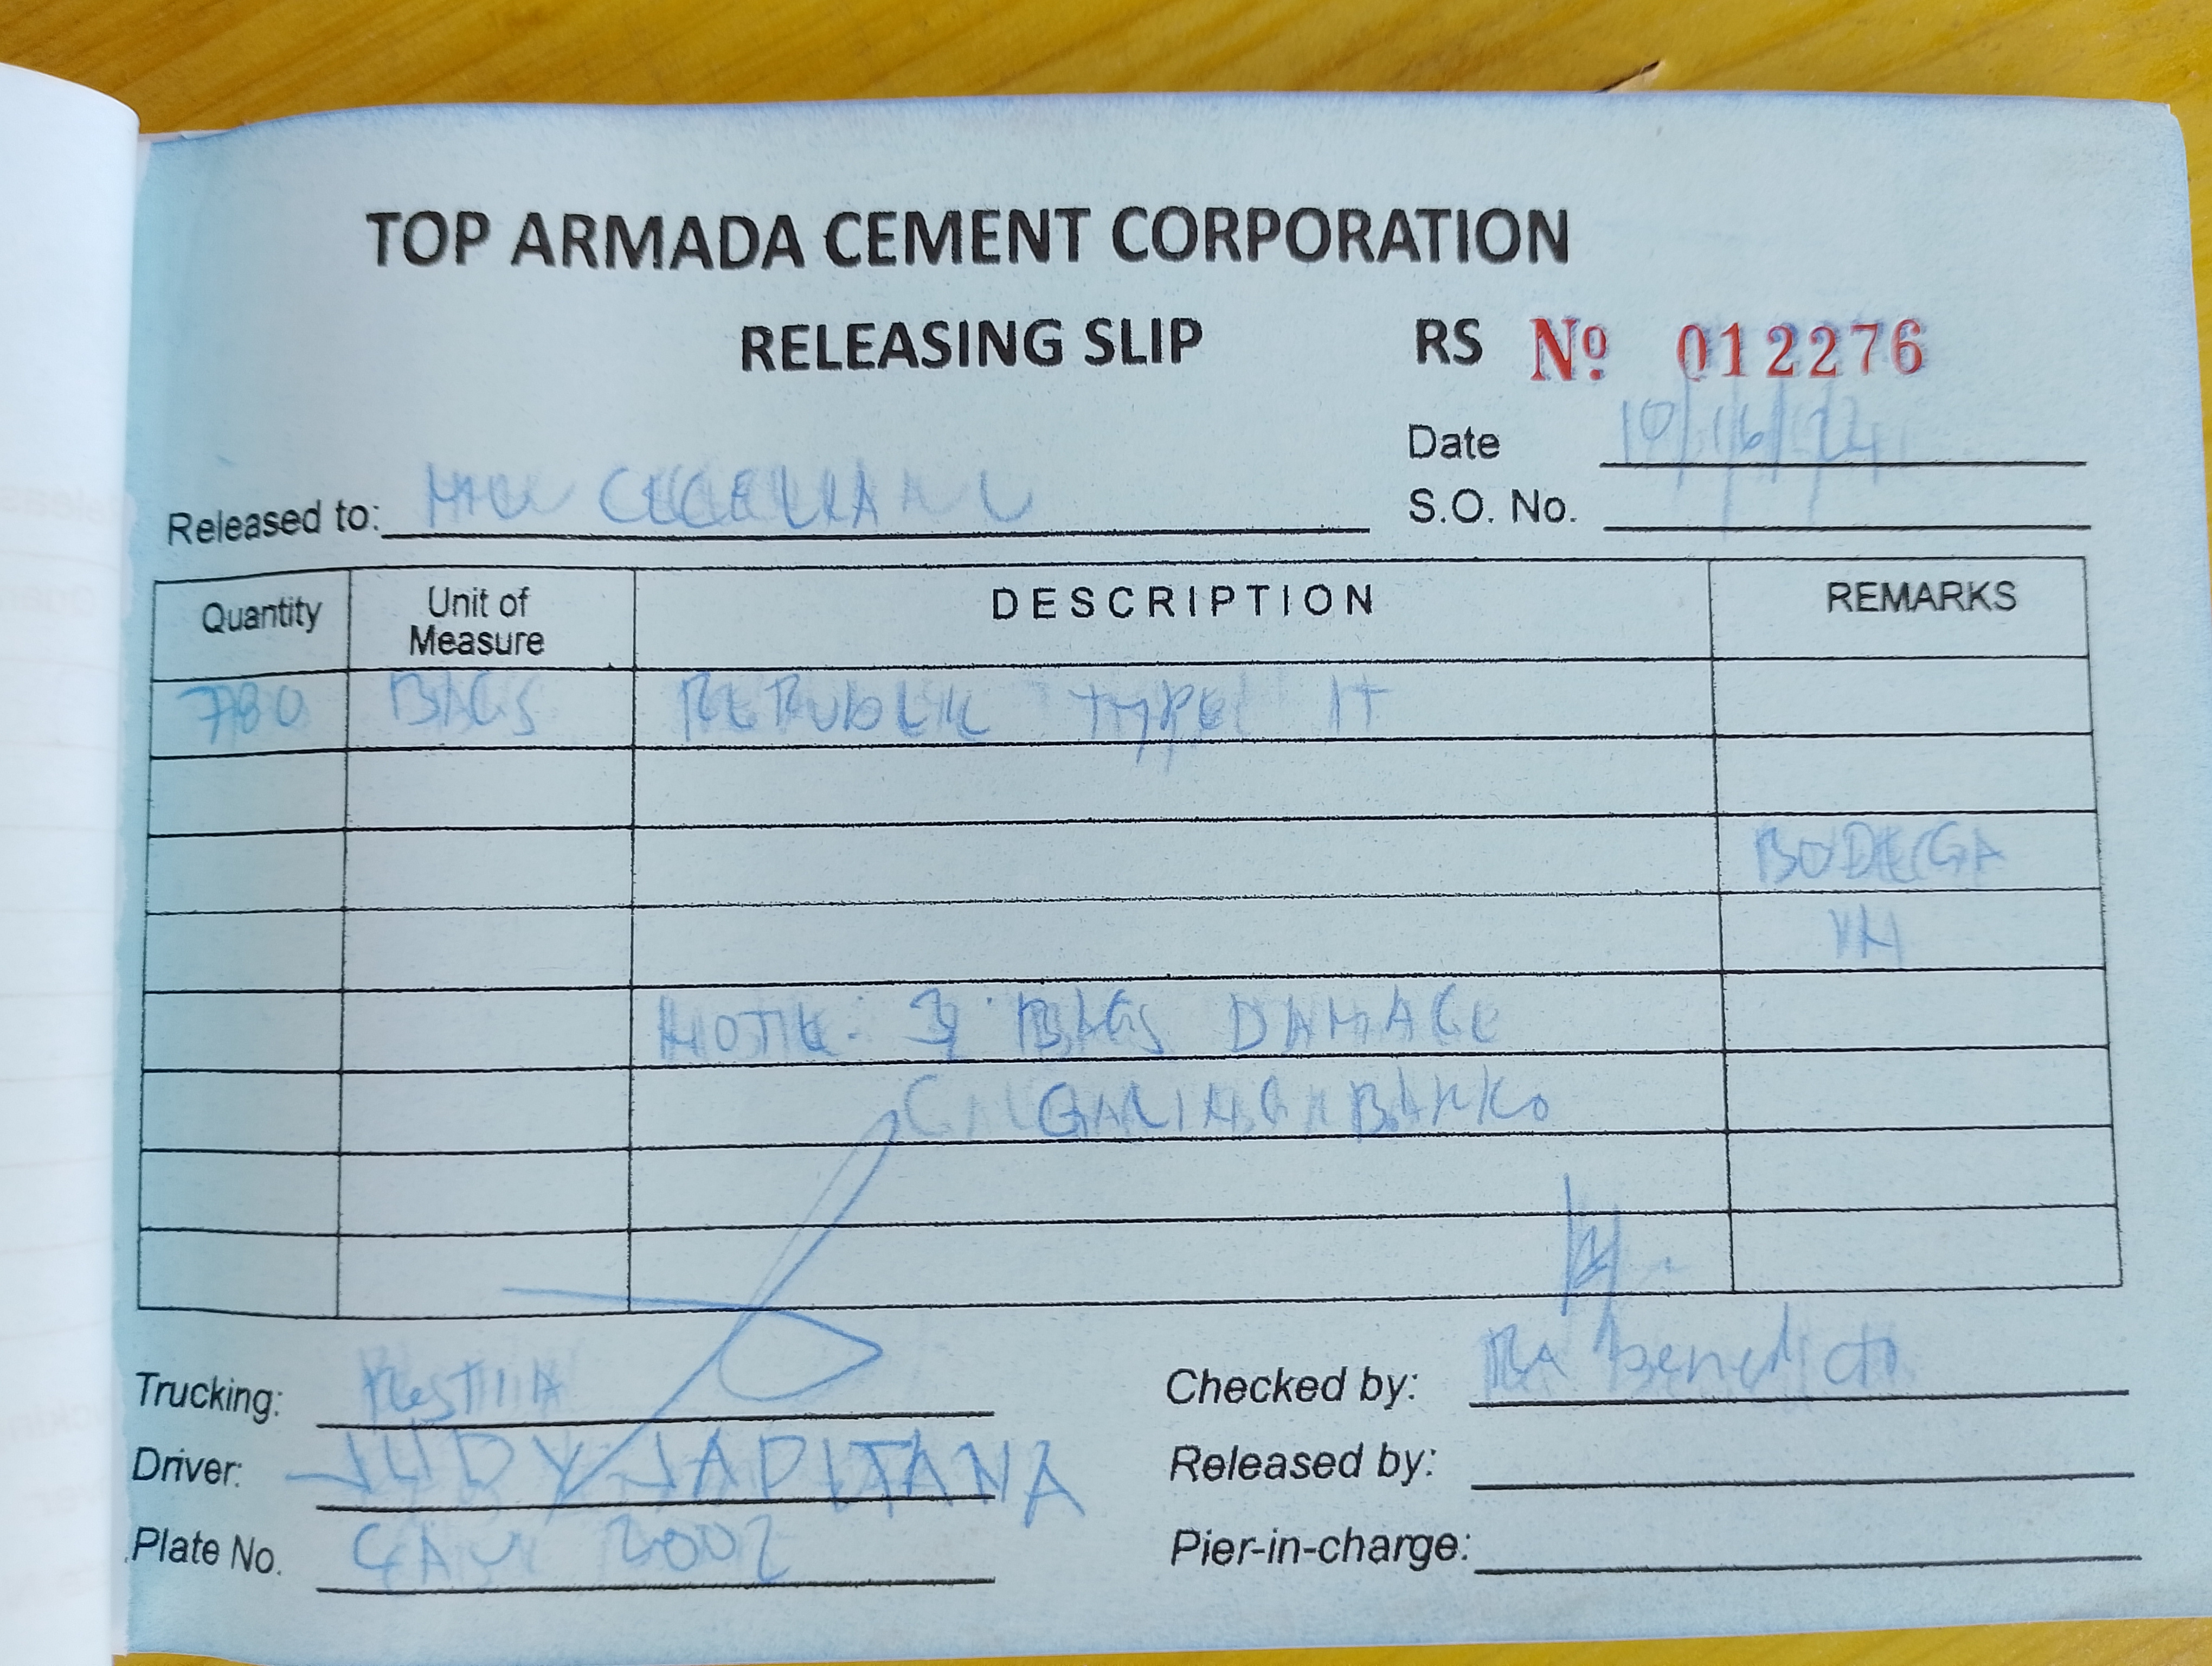 TOP ARMADA CEMENT CORPORATION
RELEASING SLIP RS Nº 012276
Date 10/16/24
Released to:
S.O. No.
Quantity Unit of Measure DESCRIPTION REMARKS
780 BAGS REPUBLIC TYPE 1T
BODEGA
NOTE: 3 BAGS DAMAGE
GALING BARKO
Trucking:
Checked by: RA Benedicto
Driver: JUDY JAPITANA
Released by:
Plate No. 2002
Pier-in-charge: